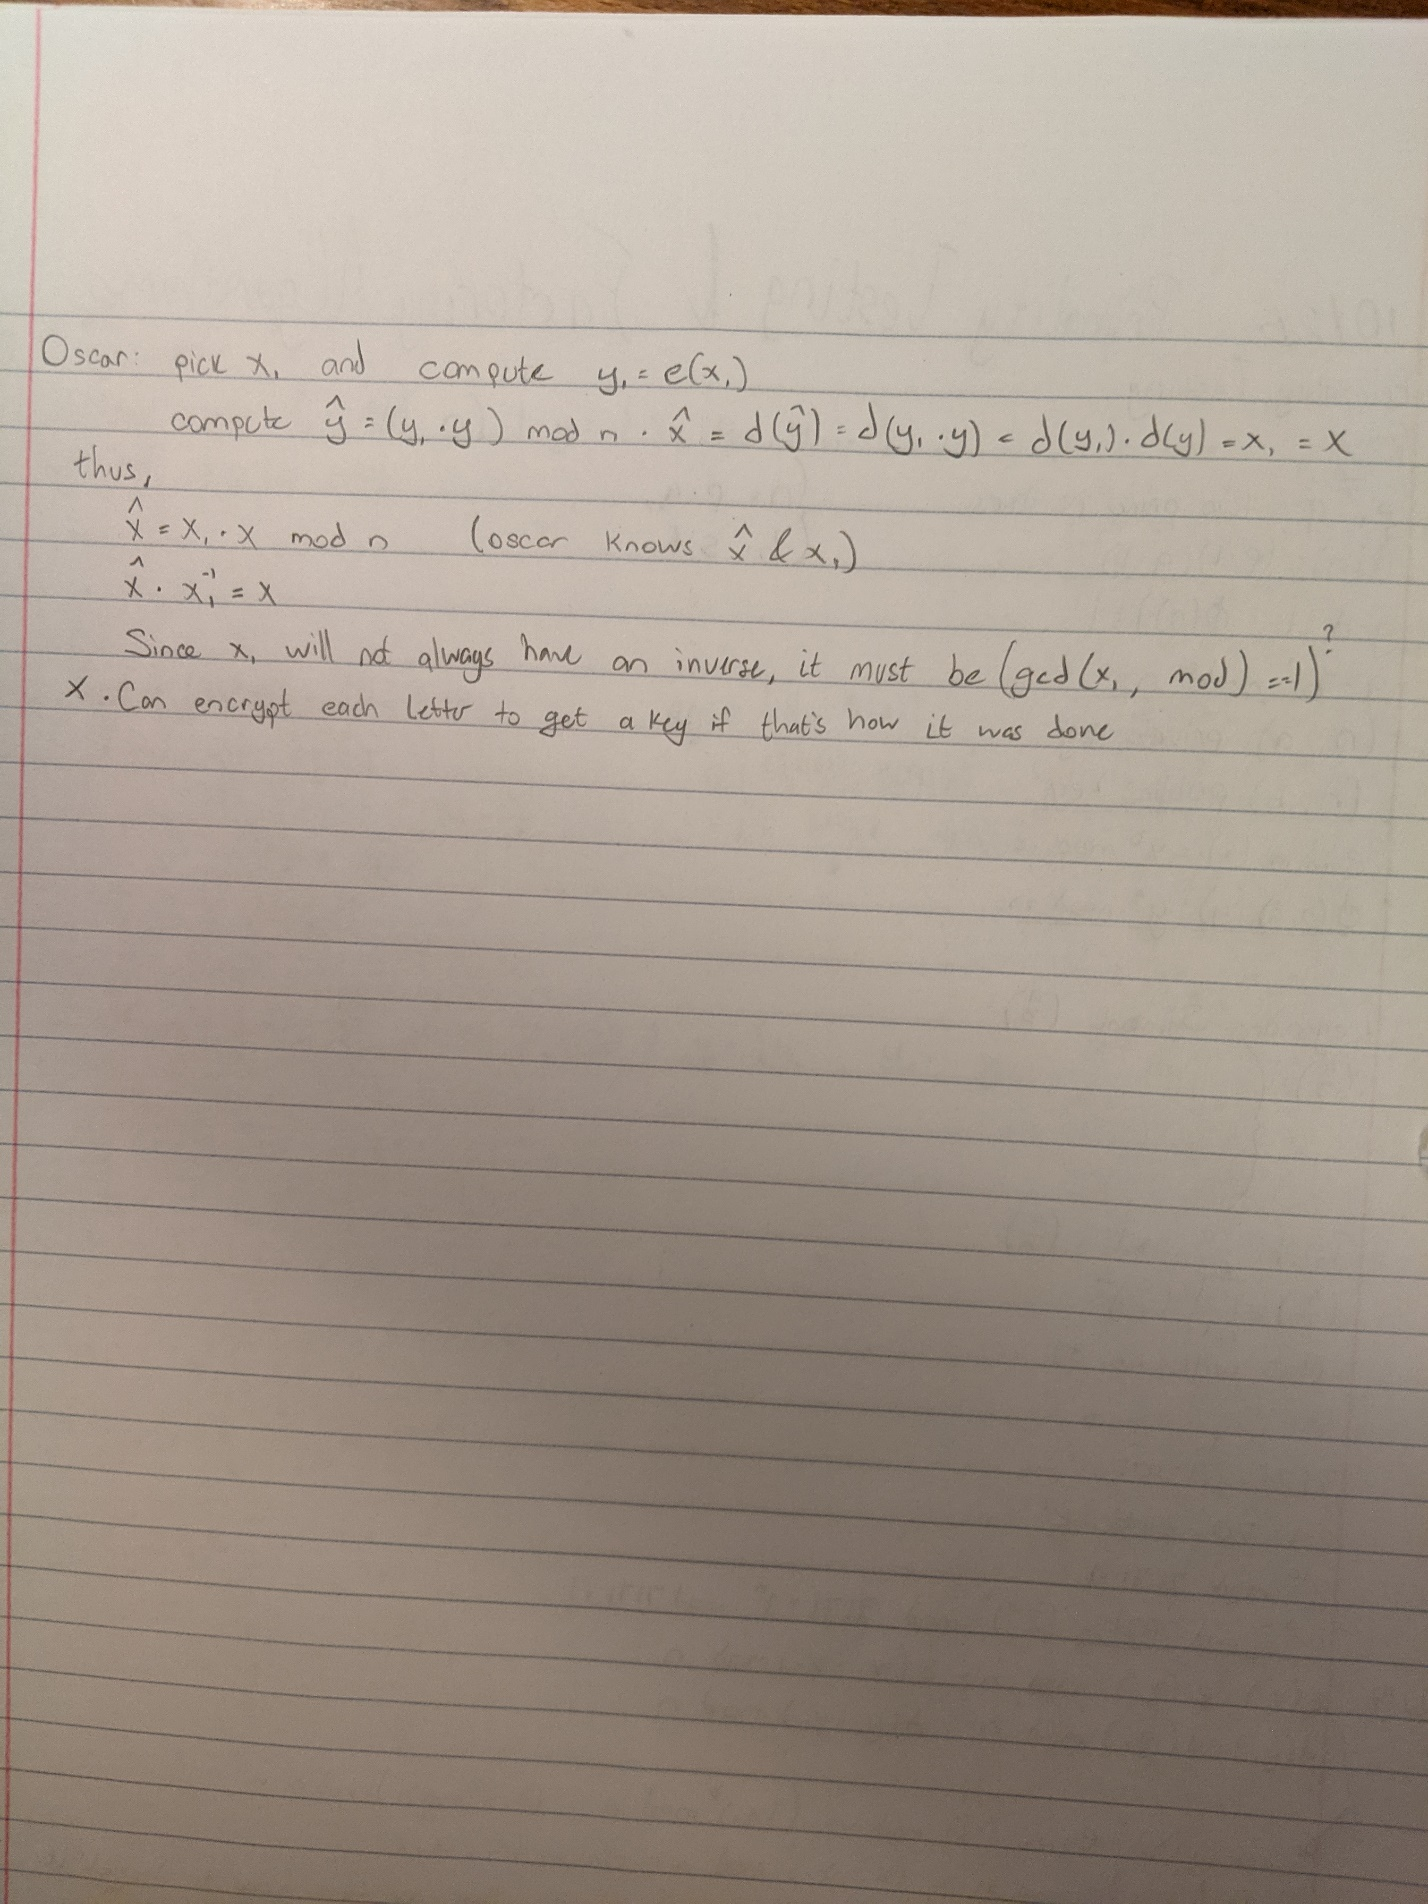 Oscar: pick x₁ and compute y₁ = e(x₁)
compute ŷ = (y₁ · y) mod n · x̂ = d(ŷ) = d(y₁ · y) = d(y₁) · d(y) = x₁ = x
thus,
x̂ = x₁ · x mod n (oscar knows x̂ & x₁)
x̂ · x₁⁻¹ = x
Since x₁ will not always have an inverse, it must be (gcd(x₁, mod) == 1)?
x · Can encrypt each letter to get a key if that's how it was done